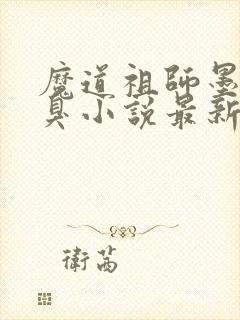 魔道祖師墨
臭小說最新
衛茜